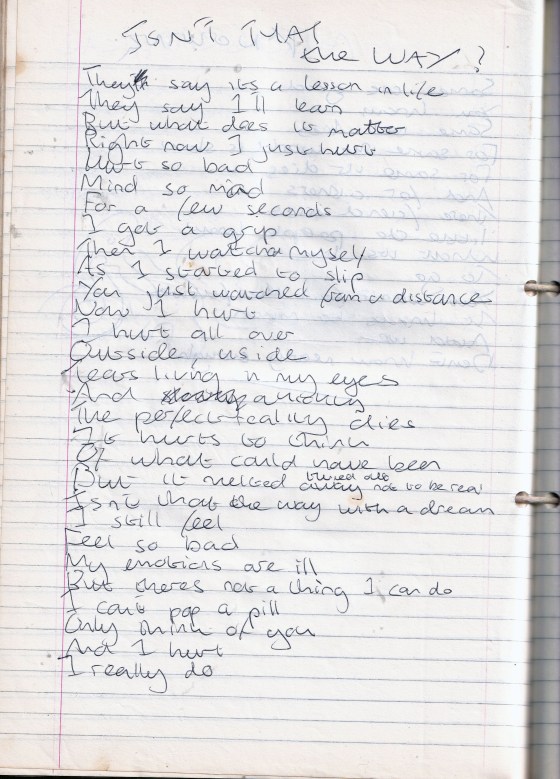 ISN'T THAT
the WAY?
They say its a lesson in life
They say I'll learn
But what does it matter
Right now I just hurt
Hurt so bad
Mind so mad
For a few seconds
I got a grip
Then I watched myself
As I started to slip
You just watched from a distance
Now I hurt
I hurt all over
Outside, inside
Tears living in my eyes
And quickly
The perfect reality dies
It hurts to think
Of what could have been
But it melted turned out not to be real
Isn't that the way with a dream
I still feel
Feel so bad
My emotions are ill
But theres not a thing I can do
I can't pop a pill
Only think of you
And I hurt
I really do